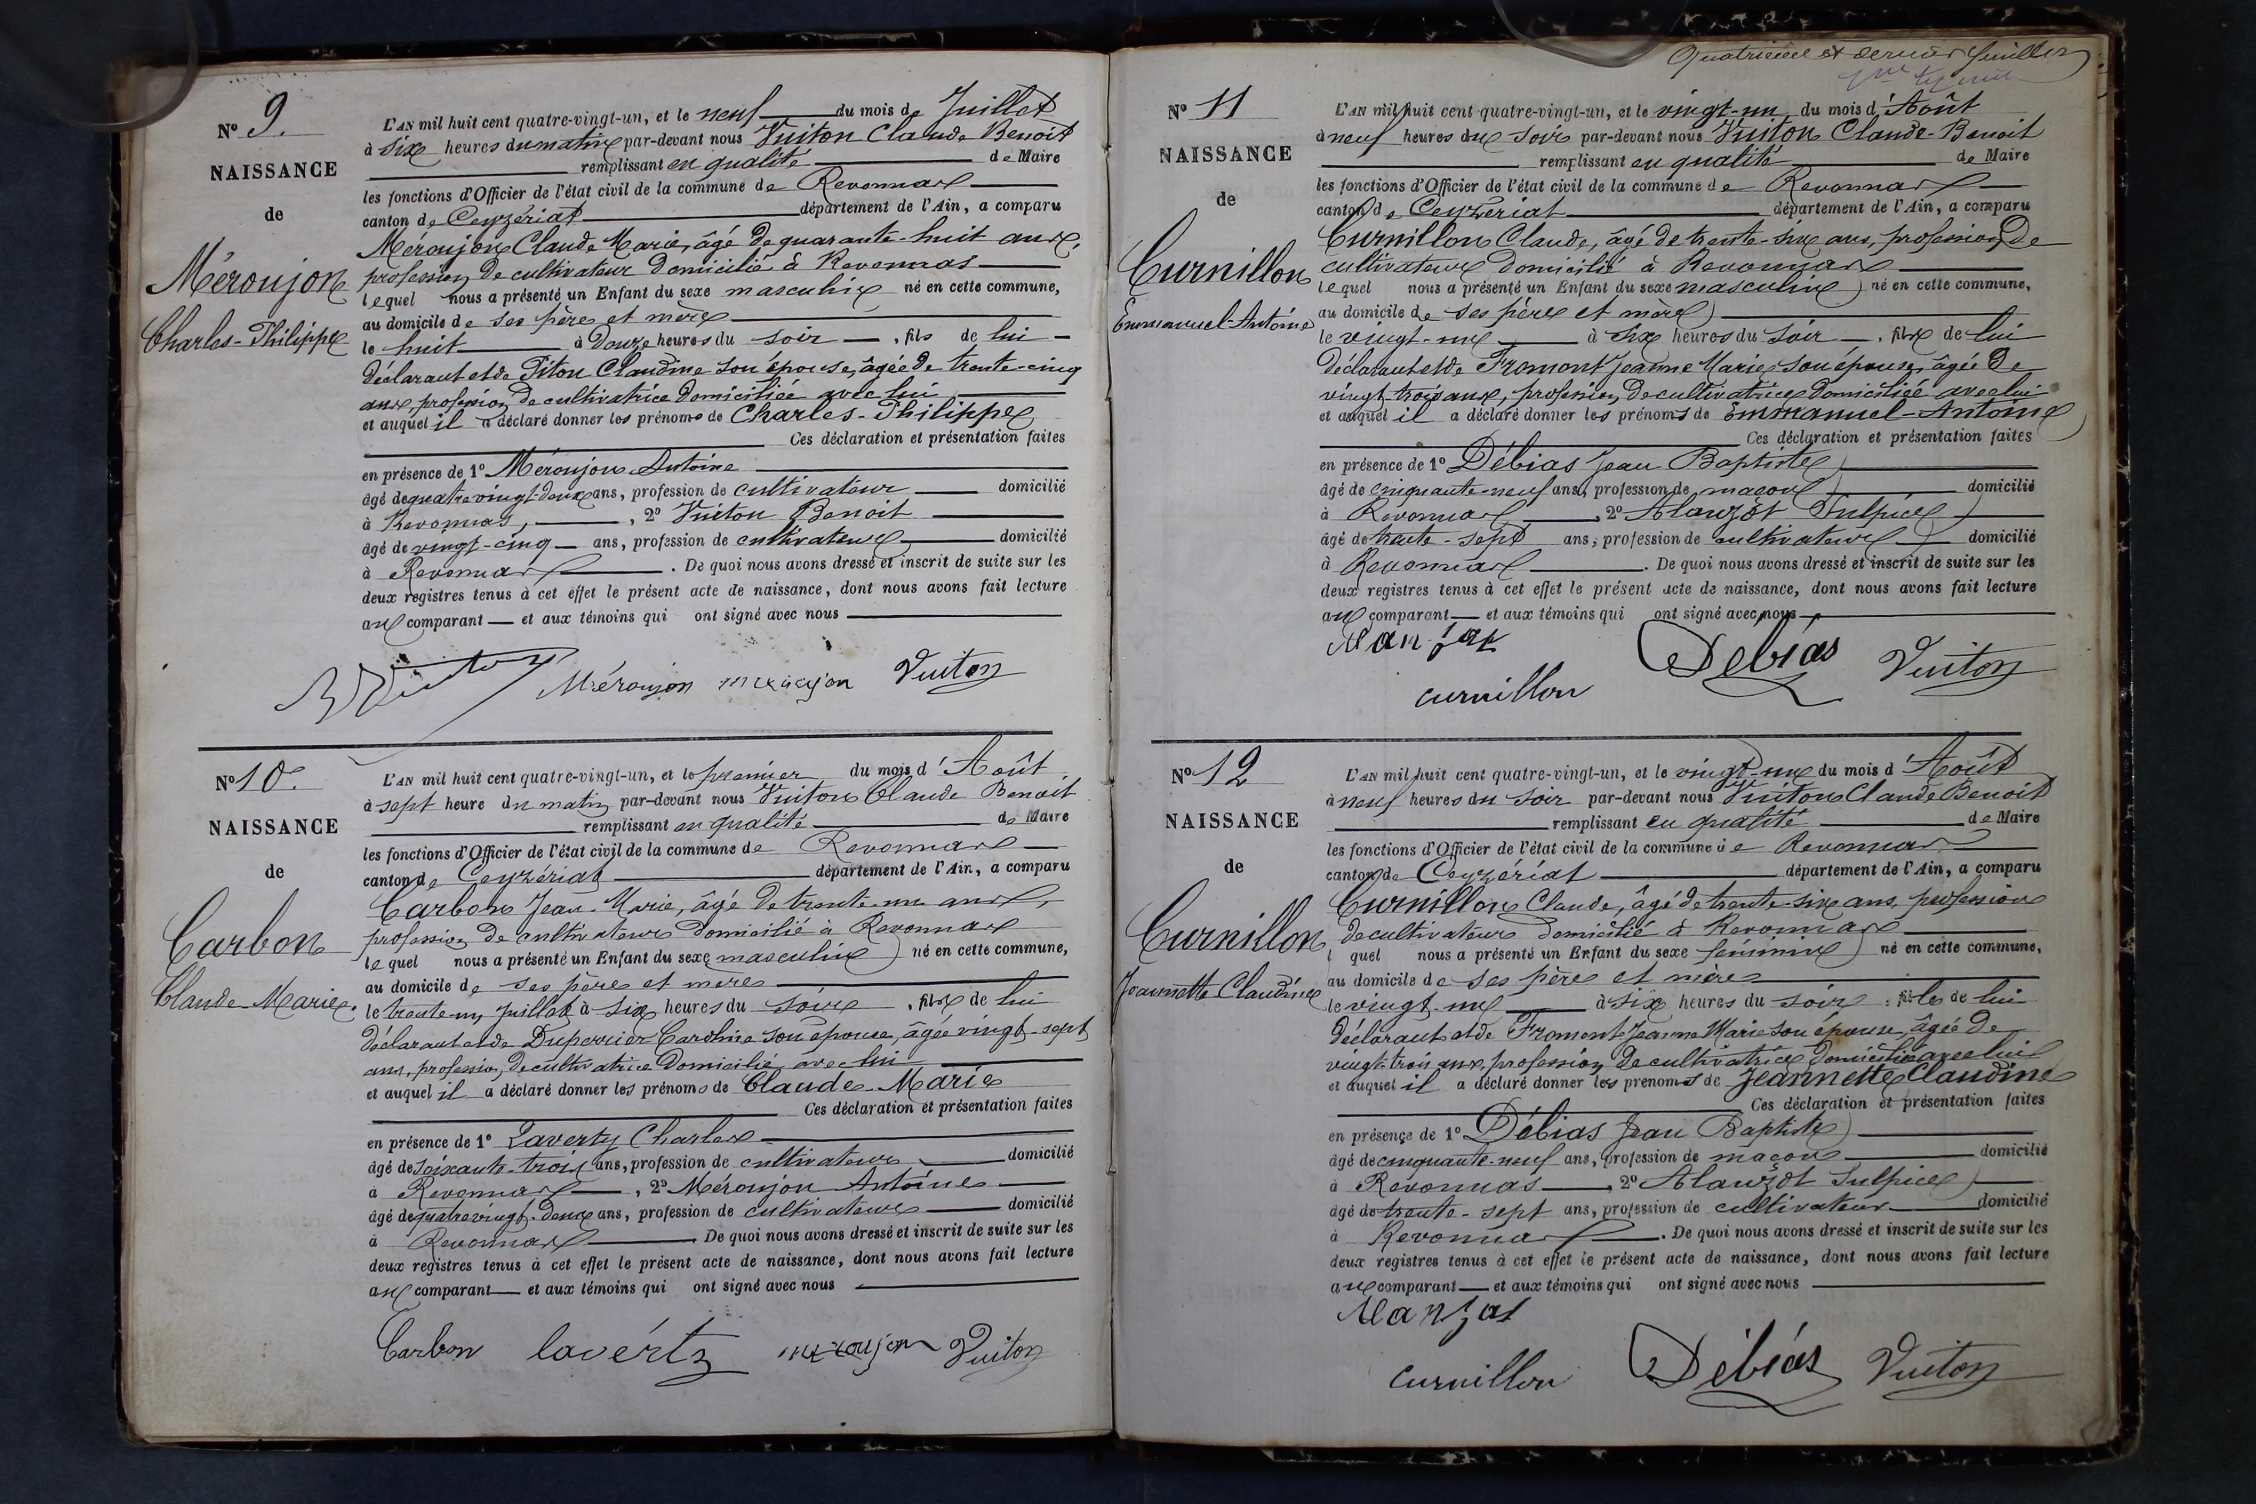 N° 9.
NAISSANCE
de
Méroujon
Charles-Philippe
L'AN mil huit cent quatre-vingt-un, et le neuf du mois de Juillet
à six heures du matin par-devant nous Vuiton Claude Benoit
remplissant en qualité de Maire
les fonctions d'Officier de l'état civil de la commune de Revonnas
canton de Ceyzériat département de l'Ain, a comparu
Méroujon Claude Marie, âgé de quarante-huit ans,
profession de cultivateur domicilié à Revonnas
lequel nous a présenté un Enfant du sexe masculin né en cette commune,
au domicile de ses père et mère
le huit à douze heures du soir, fils de lui
déclarant et de Piton Claudine son épouse, âgée de trente-cinq
ans, profession de cultivatrice domiciliée avec lui
et auquel il a déclaré donner les prénoms de Charles-Philippe
Ces déclaration et présentation faites
en présence de 1° Méroujon Antoine
âgé de quatre vingt-deux ans, profession de cultivateur domicilié
à Revonnas, , 2° Vuiton Benoit
âgé de vingt-cinq ans, profession de cultivateur domicilié
à Revonnas . De quoi nous avons dressé et inscrit de suite sur les
deux registres tenus à cet effet le présent acte de naissance, dont nous avons fait lecture
au comparant et aux témoins qui ont signé avec nous
B Vuiton Méroujon meroujon Vuiton
N° 10.
NAISSANCE
de
Carbon
Claude-Marie.
L'AN mil huit cent quatre-vingt-un, et le premier du mois d'Août
à sept heure du matin par-devant nous Vuiton Claude Benoit
remplissant en qualité de Maire
les fonctions d'Officier de l'état civil de la commune de Revonnas
canton de Ceyzériat département de l'Ain, a comparu
Carbon Jean-Marie, âgé de trente-un ans,
profession de cultivateur domicilié à Revonnas
lequel nous a présenté un Enfant du sexe masculin né en cette commune,
au domicile de ses père et mère
le trente-un Juillet à six heures du soir, fils de lui
déclarant et de Duperrier Caroline son épouse, âgée vingt-sept
ans, profession de cultivatrice domicilié avec lui
et auquel il a déclaré donner les prénoms de Claude-Marie
Ces déclaration et présentation faites
en présence de 1° Laverty Charles
âgé de soixante-trois ans, profession de cultivateur domicilié
à Revonnas, 2° Méroujon Antoine
âgé de quatre vingt-deux ans, profession de cultivateur domicilié
à Revonnas . De quoi nous avons dressé et inscrit de suite sur les
deux registres tenus à cet effet le présent acte de naissance, dont nous avons fait lecture
au comparant et aux témoins qui ont signé avec nous
Carbon lavértz meroujon Vuiton
Quatrième et dernier feuillet
N° 11
NAISSANCE
de
Curnillon
Emmanuel-Antoine
L'AN mil huit cent quatre-vingt-un, et le vingt-un du mois d'Août
à neuf heures du soir par-devant nous Vuiton Claude-Benoit
remplissant en qualité de Maire
les fonctions d'Officier de l'état civil de la commune de Revonnas
canton de Ceyzériat département de l'Ain, a comparu
Curnillon Claude, âgé de trente-six ans, profession de
cultivateur domicilié à Revonnas
lequel nous a présenté un Enfant du sexe masculin né en cette commune,
au domicile de ses père et mère
le vingt-un à six heures du soir, fils de lui
déclarant et de Fromont Jeanne Marie son épouse, âgée de
vingt-trois ans, profession de cultivatrice domiciliée avec lui
et auquel il a déclaré donner les prénoms de Emmanuel-Antoine
Ces déclaration et présentation faites
en présence de 1° Débias Jean Baptiste
âgé de cinquante-neuf ans, profession de maçon domicilié
à Revonnas, 2° Alanzot Sulpice
âgé de trente-sept ans, profession de cultivateur domicilié
à Revonnas . De quoi nous avons dressé et inscrit de suite sur les
deux registres tenus à cet effet le présent acte de naissance, dont nous avons fait lecture
au comparant et aux témoins qui ont signé avec nous
Débias Vuiton
curnillon
N° 12
NAISSANCE
de
Curnillon
Jeannette Claudine
L'AN mil huit cent quatre-vingt-un, et le vingt-un du mois d'Août
à neuf heures du soir par-devant nous Vuiton Claude Benoit
remplissant en qualité de Maire
les fonctions d'Officier de l'état civil de la commune de Revonnas
canton de Ceyzériat département de l'Ain, a comparu
Curnillon Claude, âgé de trente-six ans, profession
de cultivateur domicilié à Revonnas
l quel nous a présenté un Enfant du sexe féminin né en cette commune,
au domicile de ses père et mère
le vingt-un à six heures du soir, fille de lui
déclarant et de Fromont Jeanne Marie son épouse, âgée de
vingt-trois ans, profession de cultivatrice domiciliée avec lui
et auquel il a déclaré donner les prénoms de Jeannette Claudine
Ces déclaration et présentation faites
en présence de 1° Débias Jean Baptiste
âgé de cinquante-neuf ans, profession de maçon domicilié
à Revonnas, 2° Alanzot Sulpice
âgé de trente-sept ans, profession de cultivateur domicilié
à Revonnas . De quoi nous avons dressé et inscrit de suite sur les
deux registres tenus à cet effet le présent acte de naissance, dont nous avons fait lecture
au comparant et aux témoins qui ont signé avec nous
Alanzot
curnillon Débias Vuiton